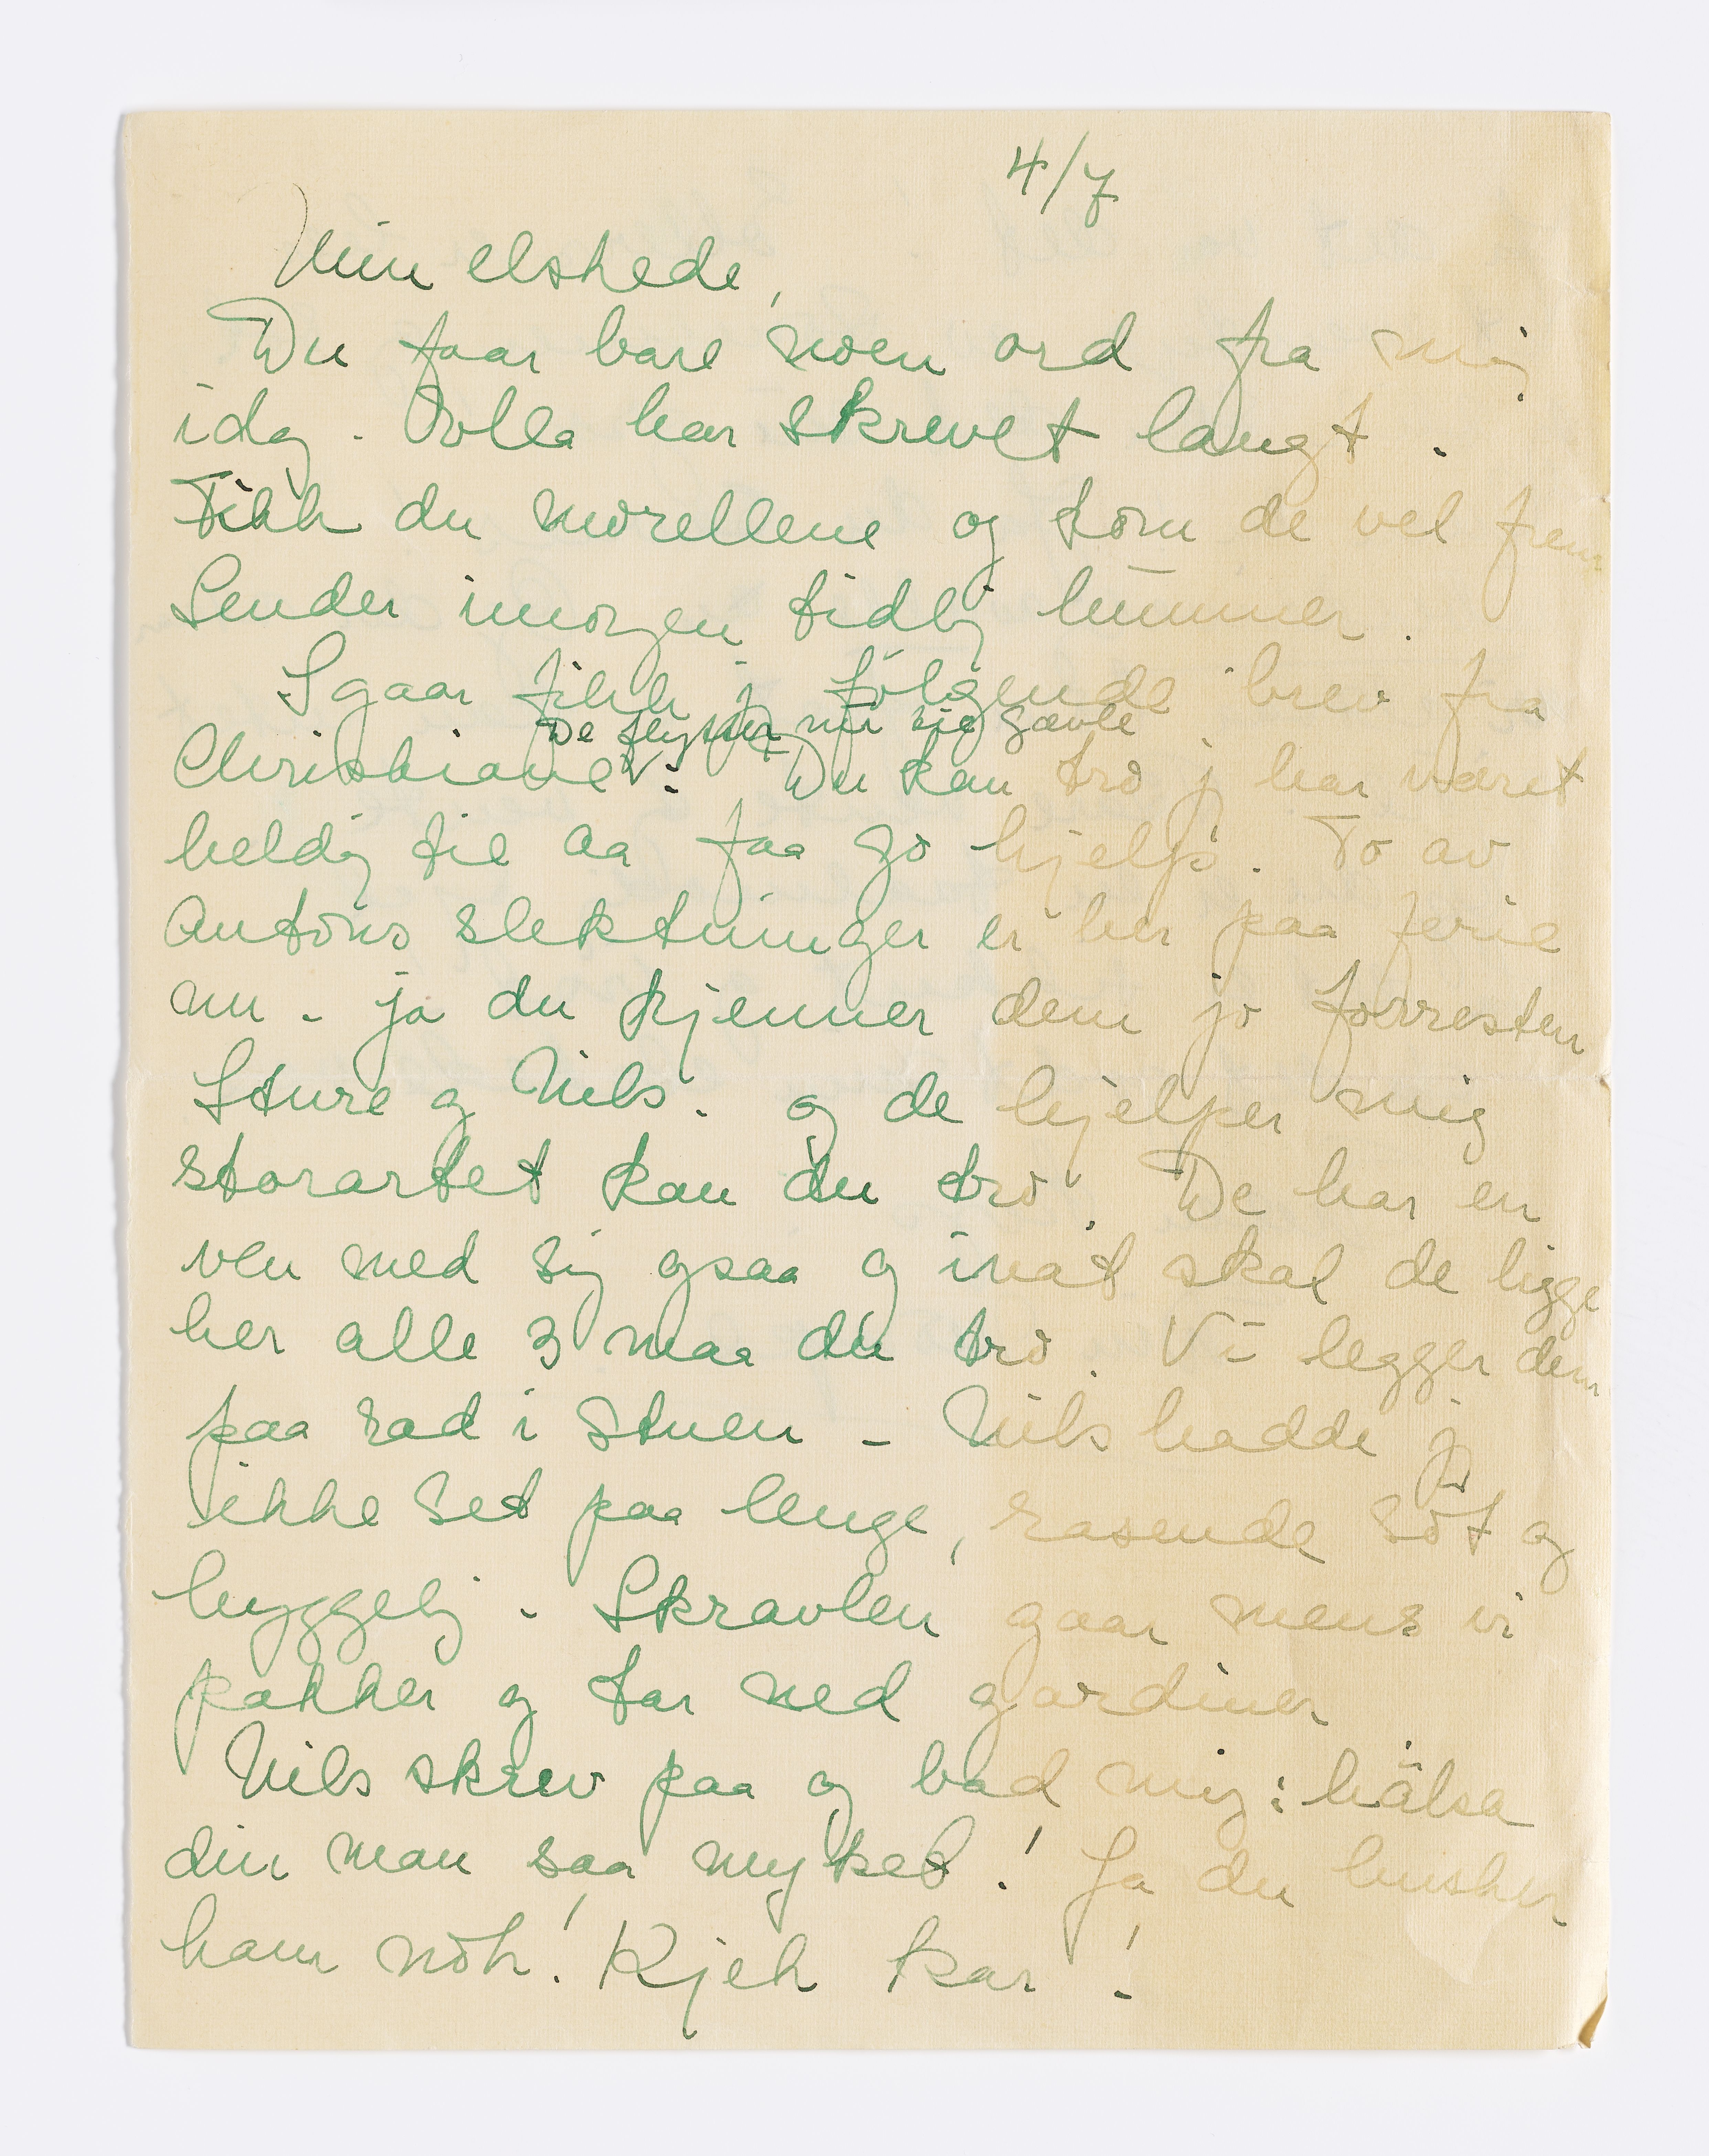 4/7
Min elskede,
Du faar bare noen ord fra mig
idag. Tolla har skrevet langt.
Fikk du morellene og kom de vel frem
Sender imorgen tidlig hummer.
Igaar fikk j følgende brev fra
De flytter nu til Gävle
Christiane: Du kan tro j har været
heldig til aa faa go hjelp. To av
Antons slektninger er her paa ferie
nu - ja du kjenner dem jo forresten
Sture og Nils. og de hjelper mig
storartet kan du tro. De har en
ven med sig ogsaa og inat skal de ligge
her alle 3 maa du tro. Vi legger dem
paa rad i stuen - Nils hadde j
ikke set paa lenge, rasende søt og
hyggelig. Skravlen gaar mens vi
pakker og tar ned gardiner
Nils skrev paa og bad mig: hälsa
din man saa myket! Ja du husker
ham nok! Kjek kar!